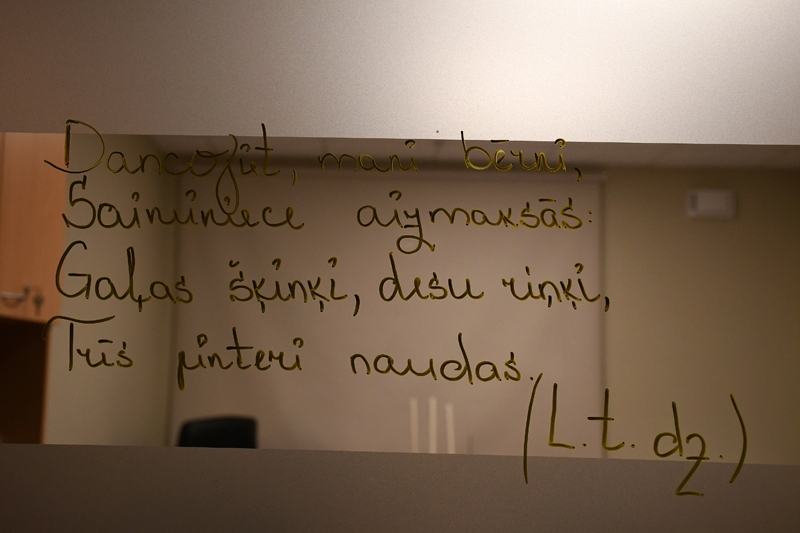 Dancojit, mani bērni,
Saiminiece aizmaksās:
Gaļas šķiņķi, desu riņķi,
Trīs pinteri naudas.
(L.t.dz.)